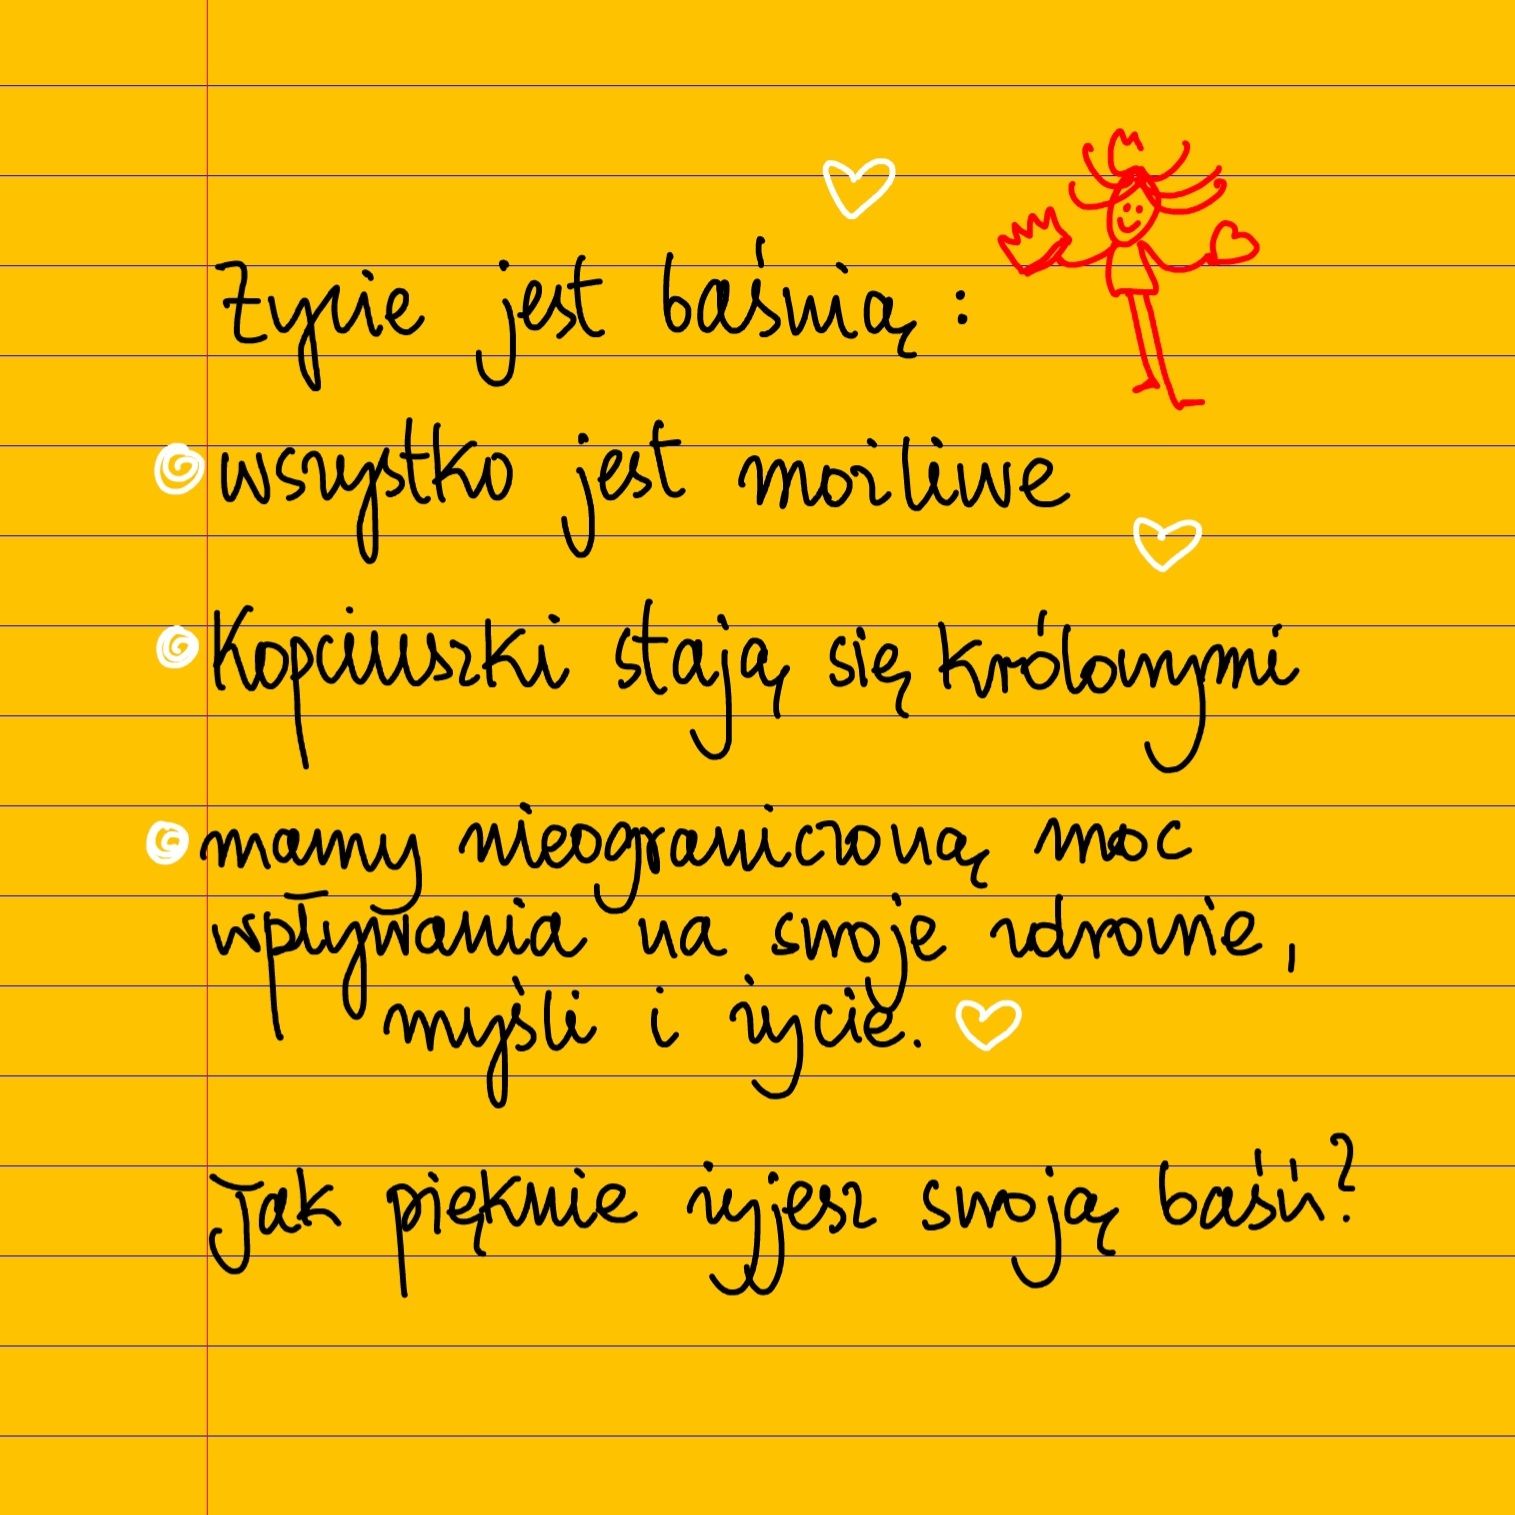 Życie jest baśnią:
wszystko jest możliwe
Kopciuszki stają się królowymi
mamy nieograniczoną moc
wpływania na swoje zdrowie,
myśli i życie.
Jak pięknie żyjesz swoją baśń?